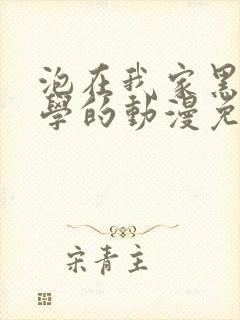 泡在我家黑
學的動漫免
宋青主